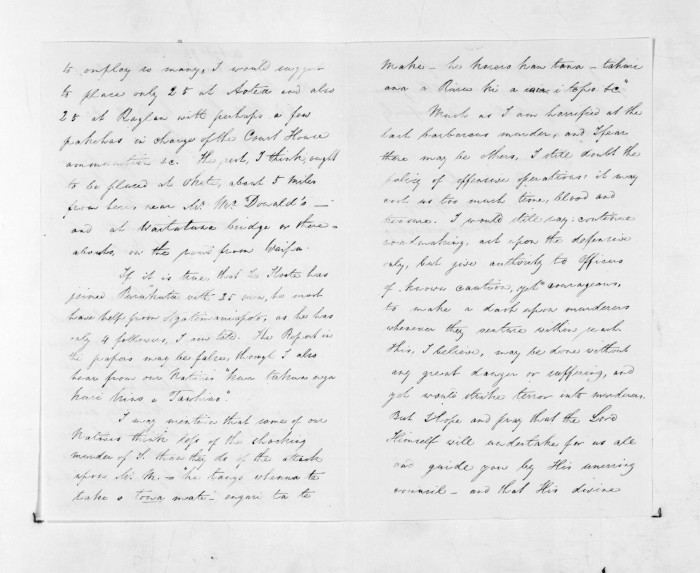 to employ so many, I would suggest
to place only 25 at Aotea and also
25 at Raglan with perhaps a few
pakehas in charge of the Court House
ammunition &c. The rest, I think, ought
to be placed at Okete, about 5 miles
from here, near Mr. McDonald's —
and at Waitetuna bridge or there-
abouts, on the road from Waipa.
If it is true that Te Kooti has
joined Purukutu with 25 men, he must
have help from Ngatimaniapoto, as he has
only 4 followers, I am told. The Report in
the papers may be false, though I also
hear from our Natives "kua takua
kino a Tawhiao."
I may mention that some of our
Natives think less of the shocking
murder of S. than they do of the attack
upon Mr. M. — "he tangi whenua te
take o tona mate — engari ta te
Make — he kohuru tana — takiri
ana a Rino ki a ia i tapu &c"
Much as I am horrified at the
last barbarous murder, and I fear
there may be others, I still doubt the
policy of offensive operations: it may
cost us too much time, blood and
I would still say: continue
roadmaking, act upon the defensive
only, but give authority to Officers
of known caution, yet courageous,
to make a dash upon murderers
whenever they venture within reach.
This, I believe, may be done without
any great danger or suffering, and
yet would strike terror into murderers.
But I hope and pray that the Lord
Himself will undertake for us all
and guide you by His unerring
council — and that His divine